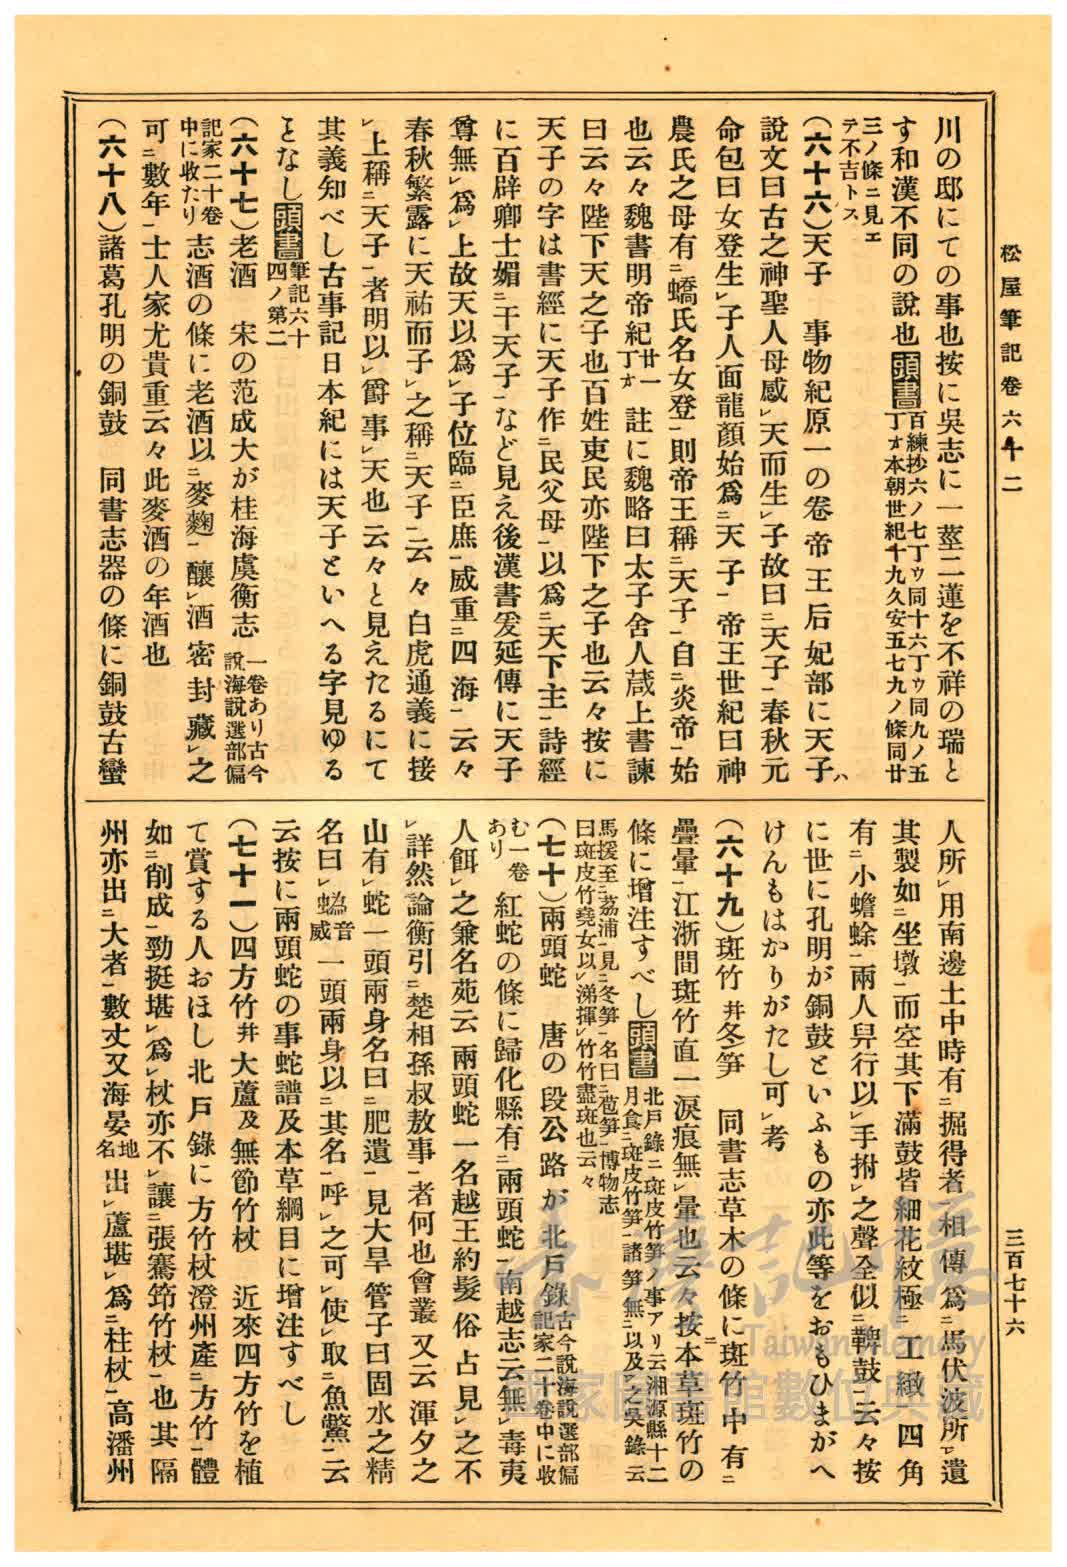 松屋筆記卷六十二
三百七十六
川の邸にての事也按に吳志に一莖二蓮を不祥の瑞と
す和漢不同の說也頭書百練抄六ノ七丁ウ同十六丁ウ同九ノ五
丁オ本朝世紀十九久安五七九ノ條同廿
三ノ條ニ見エ
テ不吉トス
(六十六)天子 事物紀原一の卷帝王后妃部に天子ハ
說文曰古之神聖人母感レ天而生レ子故曰二天子一春秋元
命包曰女登生レ子人面龍顏始爲二天子一帝王世紀曰神
農氏之母有二蟜氏名女登一則帝王稱二天子一自二炎帝一始
也云々魏書明帝紀廿一丁オ註に魏略曰太子舍人蔵上書諫
曰云々陛下天之子也百姓吏民亦陛下之子也云々按に
天子の字は書經に天子作二民父母一以爲二天下主一詩經
に百辟卿士媚二干天子一など見え後漢書爰延傳に天子
尊無レ爲レ上故天以爲レ子位臨二臣庶一威重二四海一云々
春秋繁露に天祐而子レ之稱二天子一云々白虎通義に接
レ上稱二天子一者明以レ爵事レ天也云々と見えたるにて
其義知べし古事記日本紀には天子といへる字見ゆる
ことなし頭書筆記六十
四ノ第二
(六十七)老酒 宋の范成大が桂海虞衡志一卷あり古今
說海說選部偏
記家二十卷
中に收たり志酒の條に老酒以二麥麴一釀レ酒密封藏レ之
可二數年一士人家尤貴重云々此麥酒の年酒也
(六十八)諸葛孔明の銅鼓 同書志器の條に銅鼓古蠻
人所レ用南邊土中時有二掘得者一相傳爲二馬伏波所レ遺
其製如二坐墩一而空其下滿鼓皆細花紋極二工緻一四角
有二小蟾蜍一兩人舁行以レ手拊レ之聲全似二鞞鼓一云々按
に世に孔明が銅鼓といふもの亦此等をおもひまがへ
けんもはかりがたし可レ考
(六十九)斑竹幷冬笋 同書志草木の條に斑竹中有二
疊暈一江浙間斑竹直一淚痕無レ暈也云々按二本草斑竹の
條に增注すべし頭書北戶錄ニ斑皮竹笋ノ事アリ云湘源縣十二
月食二斑皮竹笋一諸笋無二以及レ之吳錄云
馬援至二荔浦一見二冬笋一名曰二苞笋一博物志
曰斑皮竹堯女以レ涕揮レ竹竹盡斑也云々
(七十)兩頭蛇 唐の段公路が北戶錄古今說海說選部偏
記家二十卷中に收
む一卷
あり紅蛇の條に歸化縣有二兩頭蛇一南越志云無レ毒夷
人餌レ之兼名苑云兩頭蛇一名越王約髮俗占見レ之不
レ詳然論衡引二楚相孫叔敖事一者何也會叢又云渾夕之
山有レ蛇一頭兩身名曰二肥遺一見大旱管子曰固水之精
名曰レ蟡音
威一頭兩身以二其名一呼レ之可レ使レ取二魚鱉一云
云按に兩頭蛇の事蛇譜及本草綱目に增注すべし
(七十一)四方竹幷大蘆及無節竹杖 近來四方竹を植
て賞する人おほし北戶錄に方竹杖澄州產二方竹一體
如二削成一勁挺堪レ爲レ杖亦不レ讓二張騫笻竹杖一也其隔
州亦出二大者一數丈又海晏地
名出レ蘆堪レ爲二柱杖一高潘州
臺灣記憶
Taiwan Memory
國家圖書館數位典藏